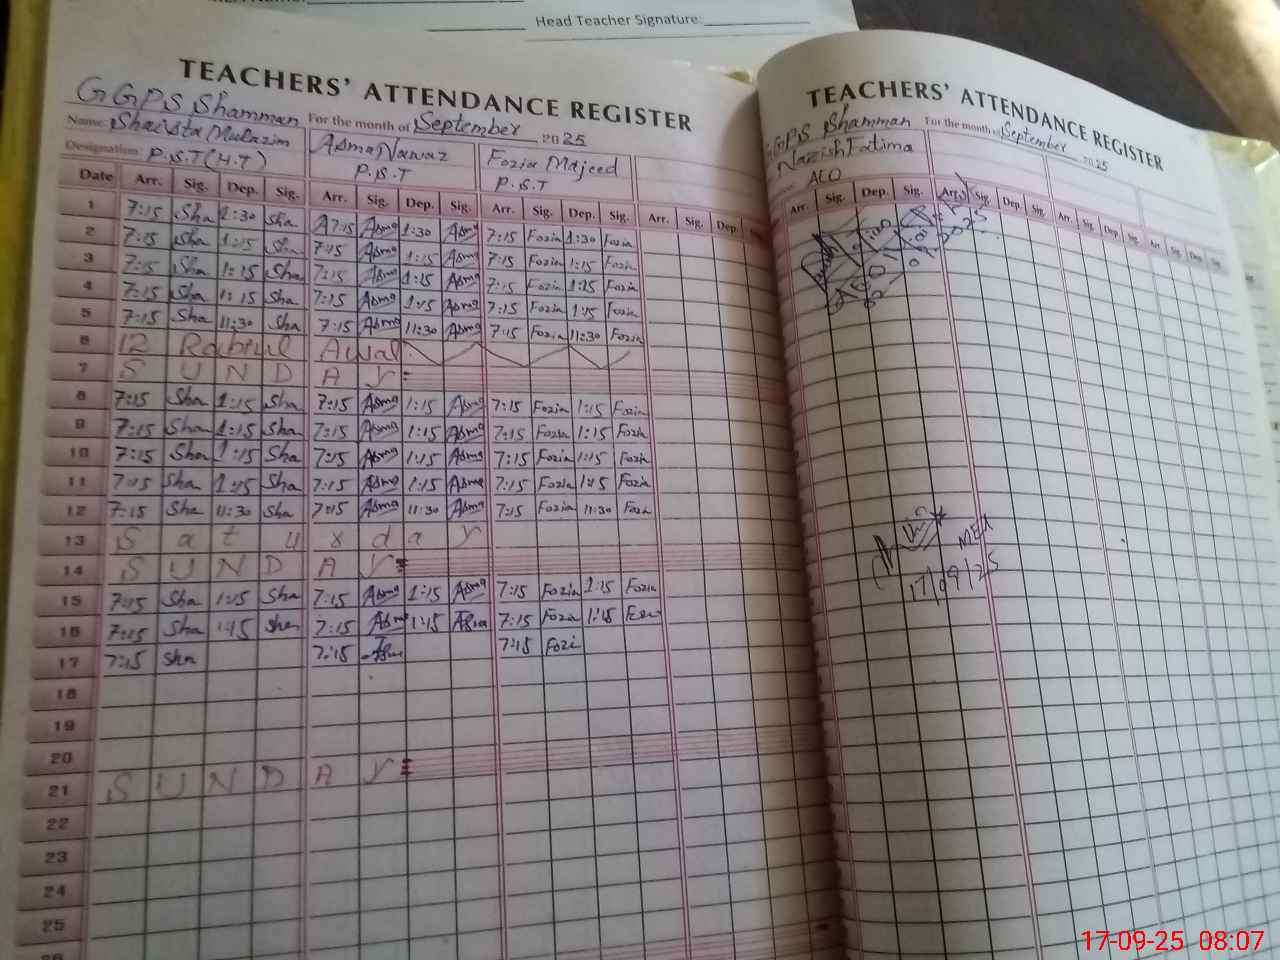 Head Teacher Signature:
TEACHERS' ATTENDANCE REGISTER
GGPS Shamman For the month of September 2025
Name: Shaista Mulazim Asma Nawaz Fozia Majeed
Designation: P.S.T (H.T) P.S.T P.S.T
Date Arr. Sig. Dep. Sig. Arr. Sig. Dep. Sig. Arr. Sig. Dep. Sig. Arr. Sig. Dep.
1 7:15 Sha 1:30 Sha 7:15 Asma 1:30 Asma 7:15 Fozia 1:30 Fozia
2 7:15 Sha 1:15 Sha 7:15 Asma 1:15 Asma 7:15 Fozia 1:15 Fozia
3 7:15 Sha 1:15 Sha 7:15 Asma 1:15 Asma 7:15 Fozia 1:15 Fozia
4 7:15 Sha 1:15 Sha 7:15 Asma 1:15 Asma 7:15 Fozia 1:15 Fozia
5 7:15 Sha 11:30 Sha 7:15 Asma 11:30 Asma 7:15 Fozia 11:30 Fozia
6 12 Rabiul Awal
7 S U N D A Y
8 7:15 Sha 1:15 Sha 7:15 Asma 1:15 Asma 7:15 Fozia 1:15 Fozia
9 7:15 Sha 1:15 Sha 7:15 Asma 1:15 Asma 7:15 Fozia 1:15 Fozia
10 7:15 Sha 1:15 Sha 7:15 Asma 1:15 Asma 7:15 Fozia 1:15 Fozia
11 7:15 Sha 1:15 Sha 7:15 Asma 1:15 Asma 7:15 Fozia 1:15 Fozia
12 7:15 Sha 11:30 Sha 7:15 Asma 11:30 Asma 7:15 Fozia 11:30 Fozia
13 S a t u r d a y
14 S U N D A Y
15 7:15 Sha 1:15 Sha 7:15 Asma 1:15 Asma 7:15 Fozia 1:15 Fozia
16 7:15 Sha 1:15 Sha 7:15 Asma 1:15 Asma 7:15 Fozia 1:15
17 7:15 Sha 7:15 7:15 Fozi
18
19
20
21 S U N D A Y
22
23
24
25
TEACHERS' ATTENDANCE REGISTER
GGPS Shamman For the month of September 2025
Nazish Fatima
AEO
Arr. Sig. Dep. Sig. Arr. Sig. Dep. Sig. Arr. Sig. Dep. Sig. Arr. Sig. Dep. Sig.
MEA
17/09/25
17-09-25 08:07